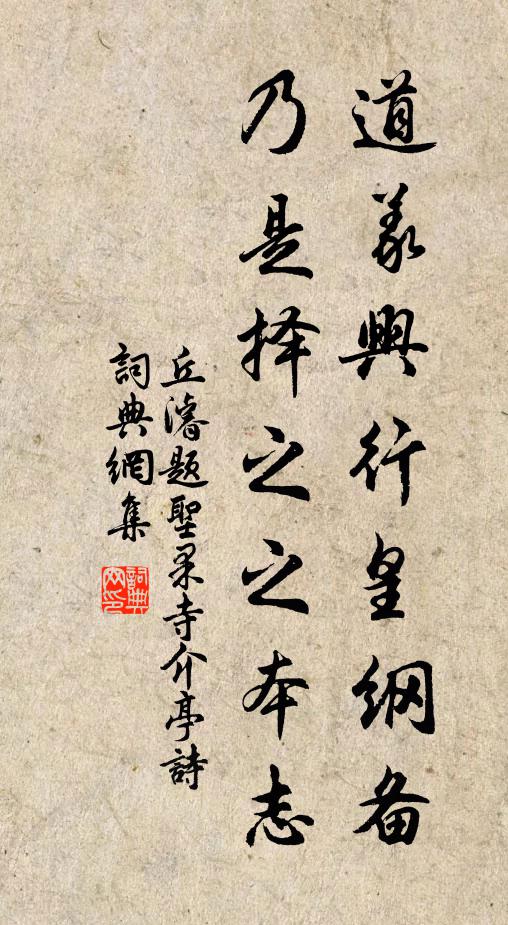 道義興行皇纲备
乃是择之之本志
丘濬题聖果寺介亭詩
詞典網集
詞典网印